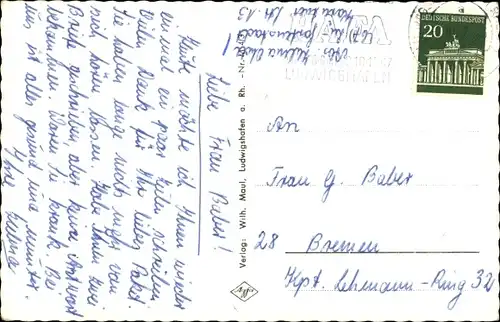 Liebe Frau Baber!
Heute möchte ich Ihnen wieder
einmal ein paar Zeilen schreiben.
Vielen Dank für Ihr liebes Paket.
Sie haben lange nichts mehr von
sich hören lassen. Habe Ihnen zwei
Briefe geschrieben, aber keine Antwort
bekommen. Waren Sie krank? Bei
uns ist alles gesund und munter.
Ihre
Abs.
67 Lu-
Verlag: Wilh. Maul, Ludwigshafen a. Rh.
Agfa
DEUTSCHE BUNDESPOST
20
LUDWIGSHAFEN
An
Frau G. Baber
28 Bremen
Kpt. Lehmann-Ring 32